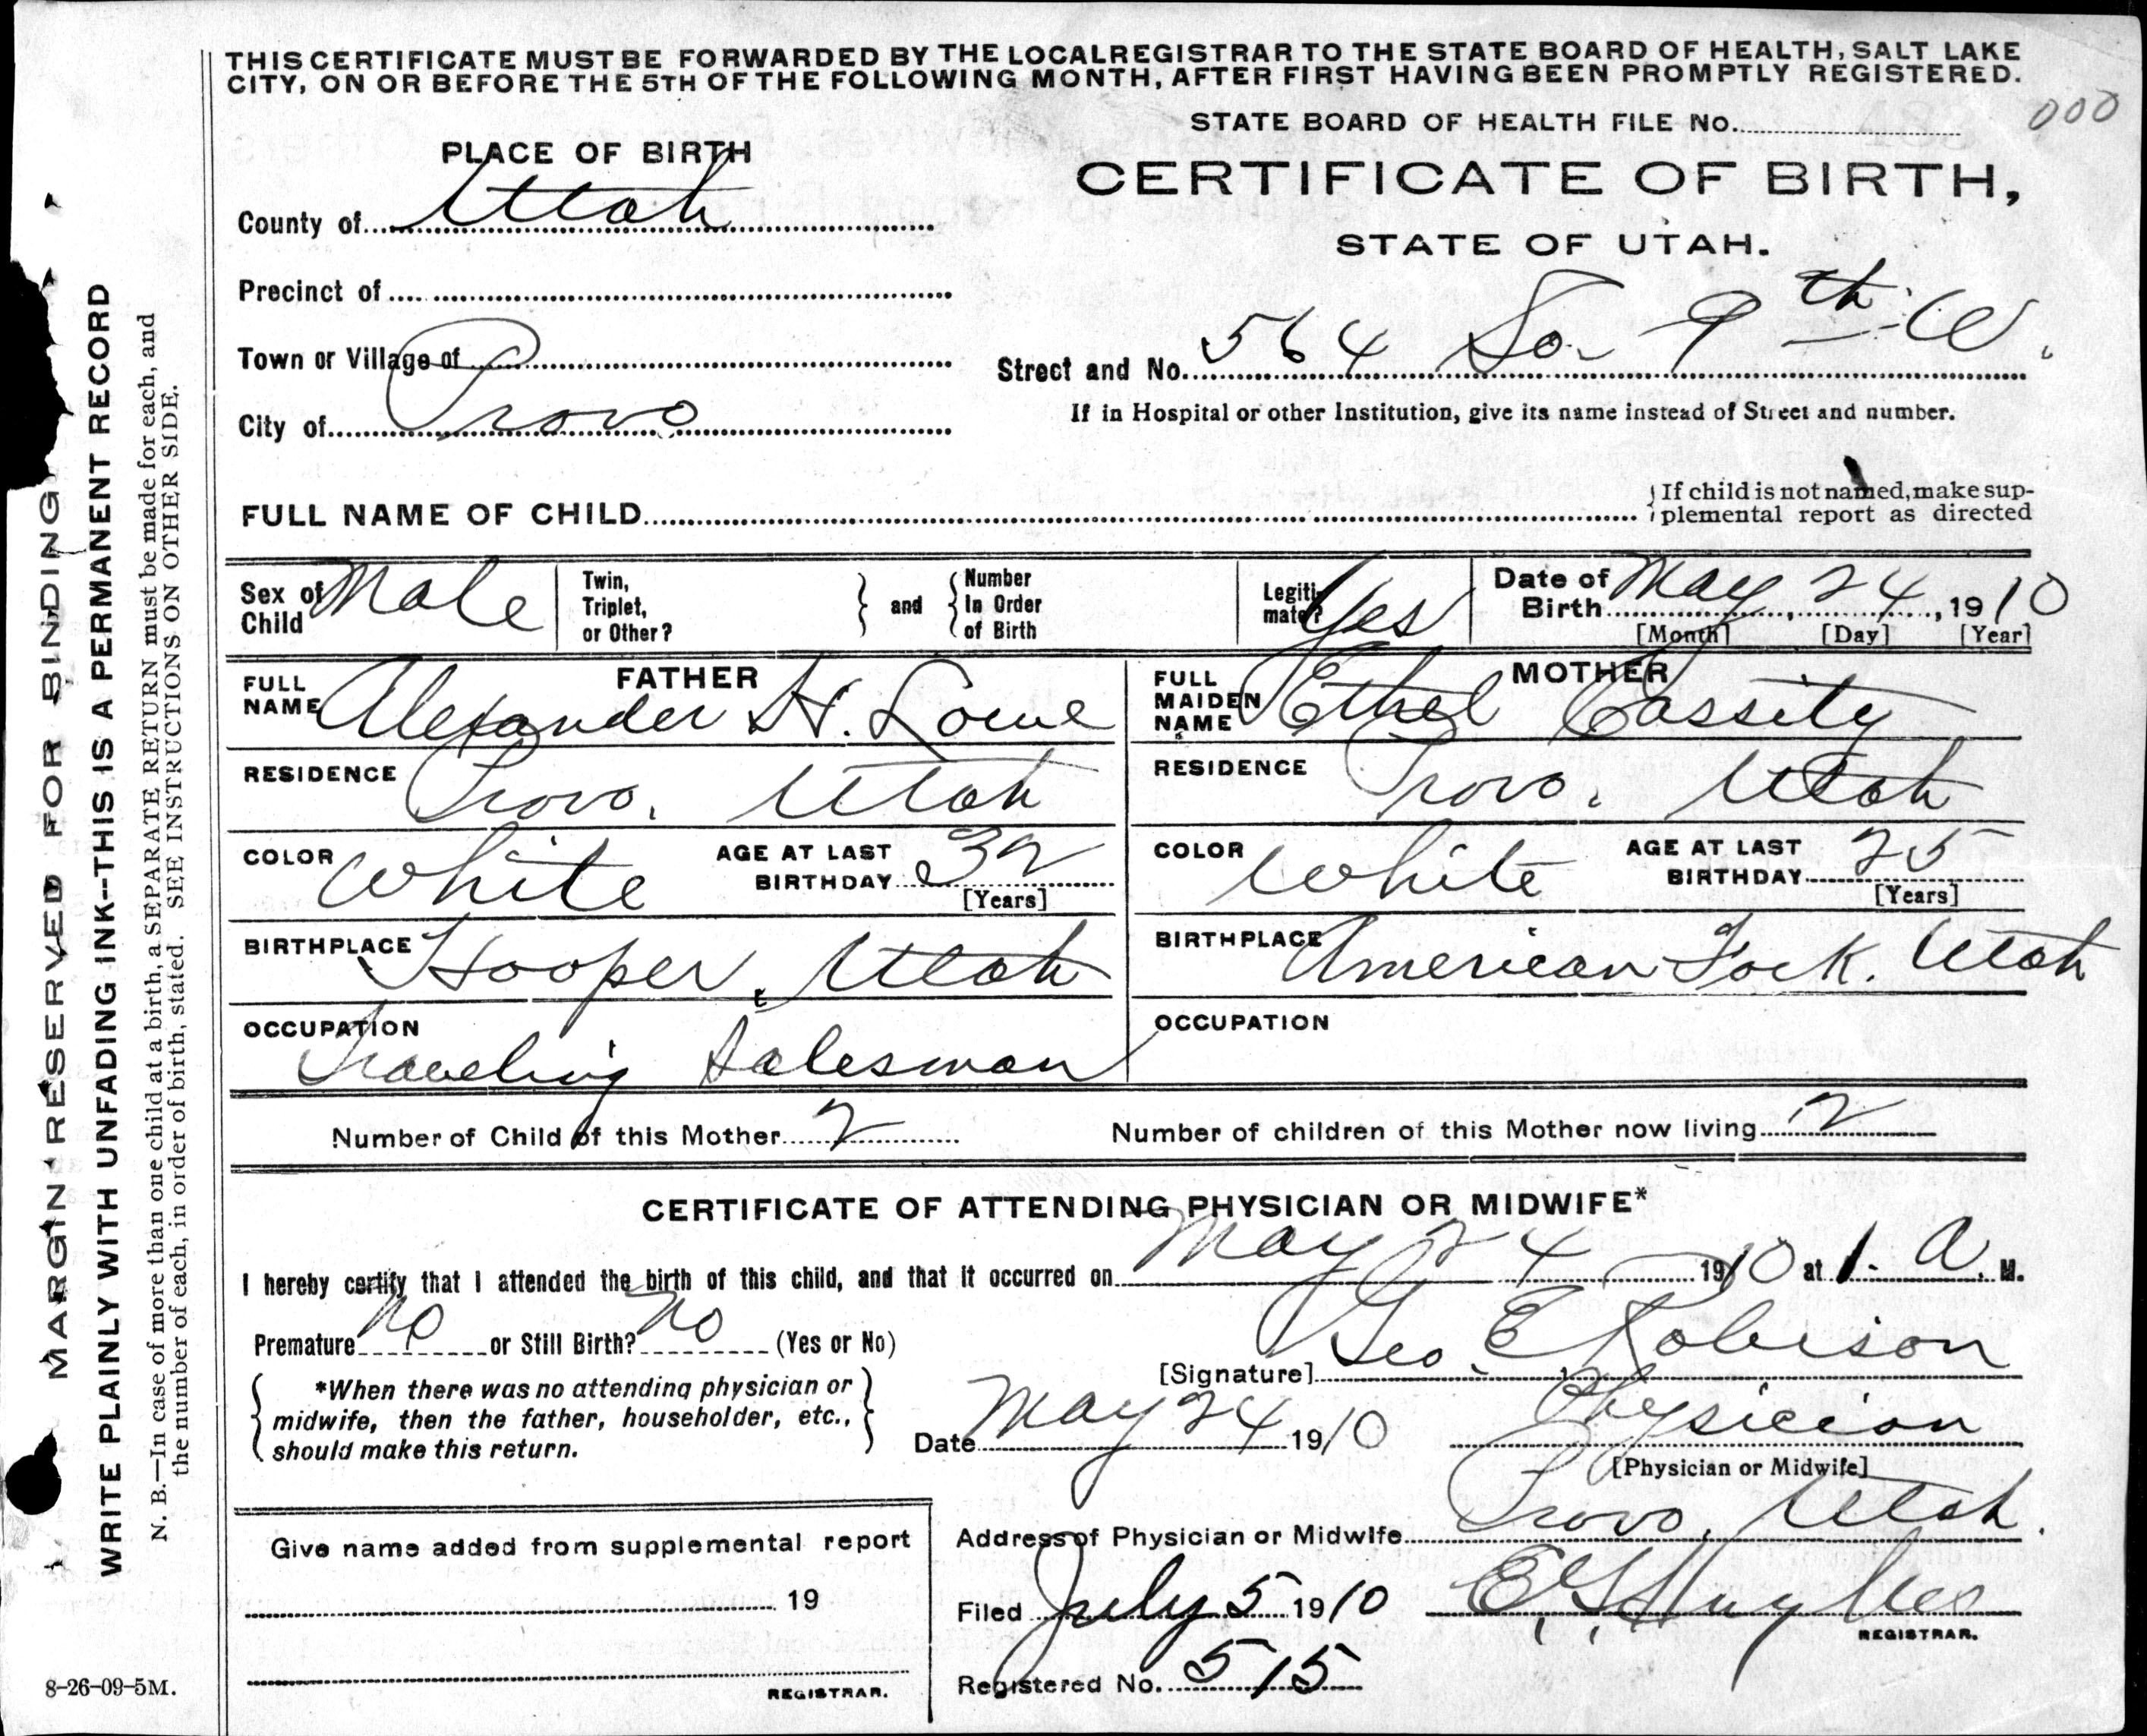 THIS CERTIFICATE MUST BE FORWARDED BY THE LOCAL REGISTRAR TO THE STATE BOARD OF HEALTH, SALT LAKE
CITY, ON OR BEFORE THE 5TH OF THE FOLLOWING MONTH, AFTER FIRST HAVING BEEN PROMPTLY REGISTERED.
STATE BOARD OF HEALTH FILE No. 000
PLACE OF BIRTH
CERTIFICATE OF BIRTH,
STATE OF UTAH.
County of Utah
Precinct of
Town or Village of
City of Provo
Street and No. 564 So- 9th W.
If in Hospital or other Institution, give its name instead of Street and number.
FULL NAME OF CHILD
If child is not named, make sup-
plemental report as directed
Sex of Child Male
Twin, Triplet, or Other?
and
Number In Order of Birth
Legiti-mate? Yes
Date of Birth May 24, 1910
[Month] [Day] [Year]
FATHER
FULL NAME Alexander H. Lowe
RESIDENCE Provo, Utah
COLOR White AGE AT LAST BIRTHDAY 32
[Years]
BIRTHPLACE Hooper, Utah
OCCUPATION
Traveling Salesman
MOTHER
FULL MAIDEN NAME Ethel Cassity
RESIDENCE Provo, Utah
COLOR White AGE AT LAST BIRTHDAY 25
[Years]
BIRTHPLACE American Fork. Utah
OCCUPATION
Number of Child of this Mother 2
Number of children of this Mother now living 2
CERTIFICATE OF ATTENDING PHYSICIAN OR MIDWIFE*
I hereby certify that I attended the birth of this child, and that it occurred on May 24 1910 at 1- A. M.
Premature no or Still Birth? no (Yes or No)
[Signature] Geo. E Robison
*When there was no attending physician or
midwife, then the father, householder, etc.,
should make this return.
Date May 24 1910
Physician
[Physician or Midwife]
Address of Physician or Midwife Provo, Utah.
Give name added from supplemental report
19
REGISTRAR.
Filed July 5 1910
REGISTRAR.
Registered No. 515
MARGIN RESERVED FOR BINDING
WRITE PLAINLY WITH UNFADING INK--THIS IS A PERMANENT RECORD
N. B.—In case of more than one child at a birth, a SEPARATE RETURN must be made for each, and
the number of each, in order of birth, stated. SEE INSTRUCTIONS ON OTHER SIDE.
8-26-09-5M.